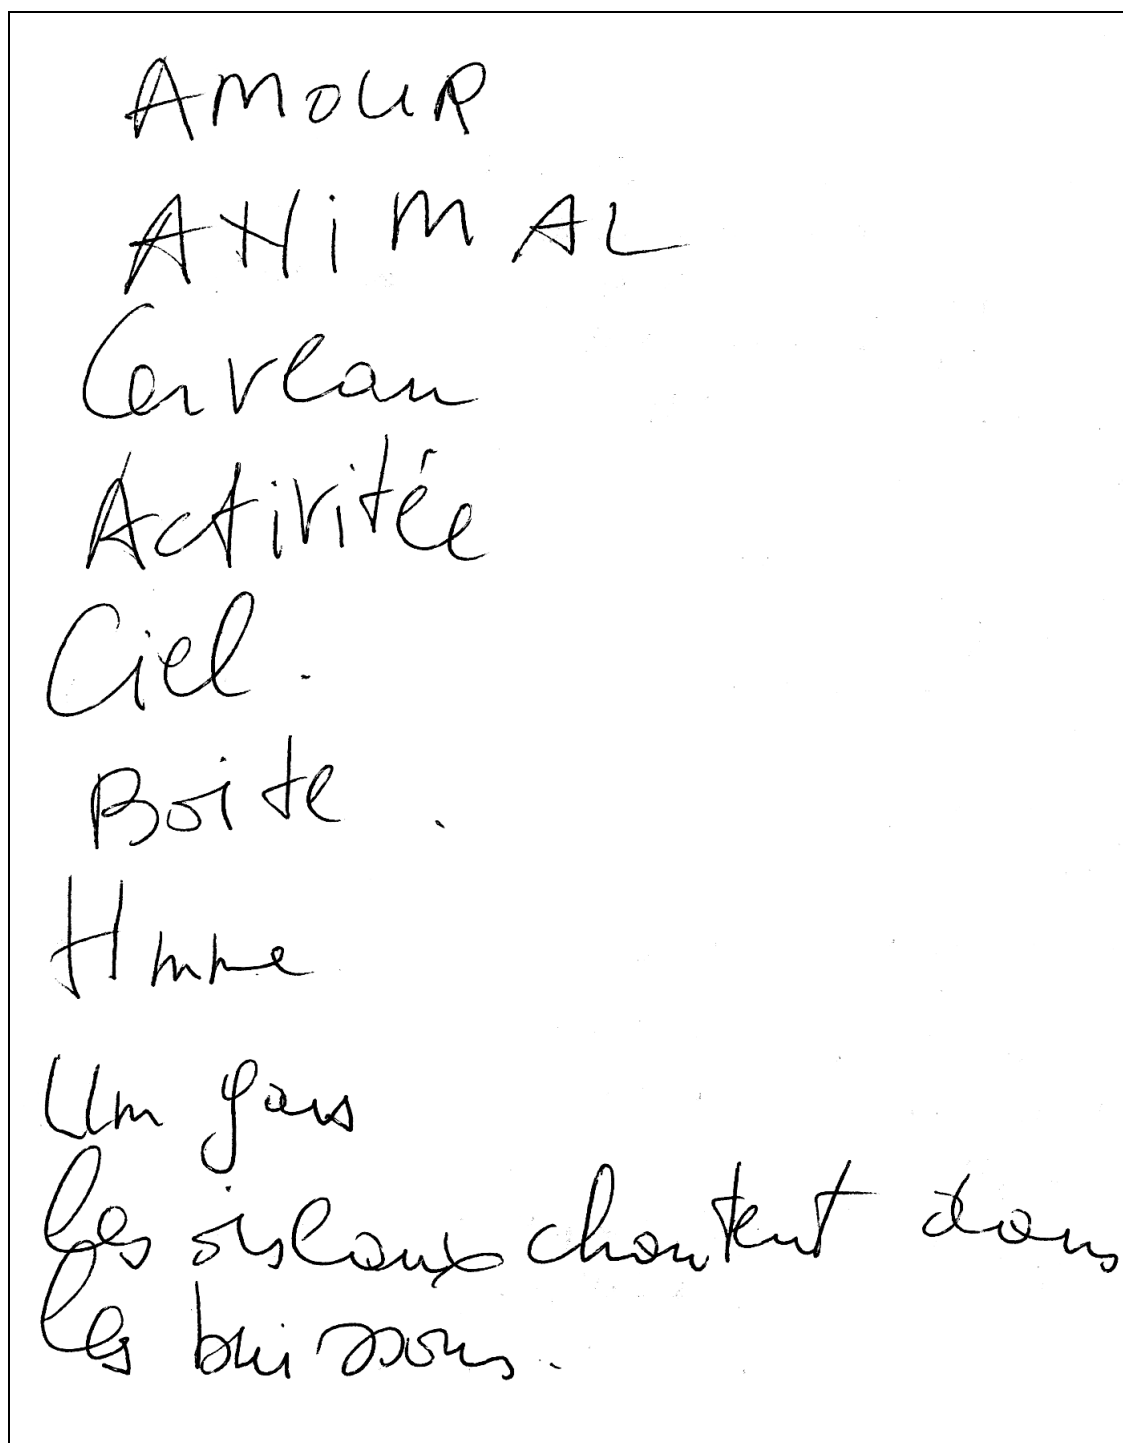 AMOUR
ANiMAL
Cerveau
Activitée
Ciel.
Boite.
Hmme
Um gars
Les oiseaux chantent dans
les buissons.